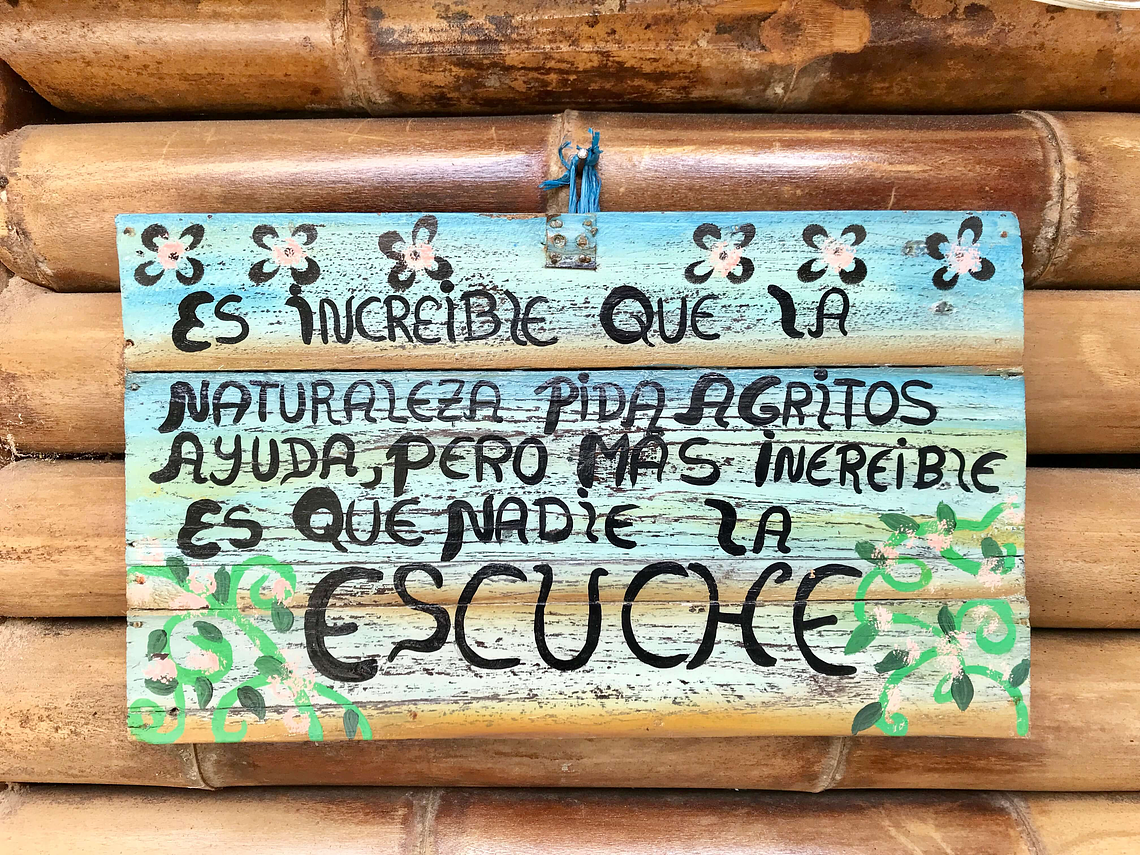 ES INCREIBLE QUE LA
NATURALEZA PIDA AGRITOS
AYUDA, PERO MÁS INEREIBLE
ES QUE NADIE LA
ESCUCHE